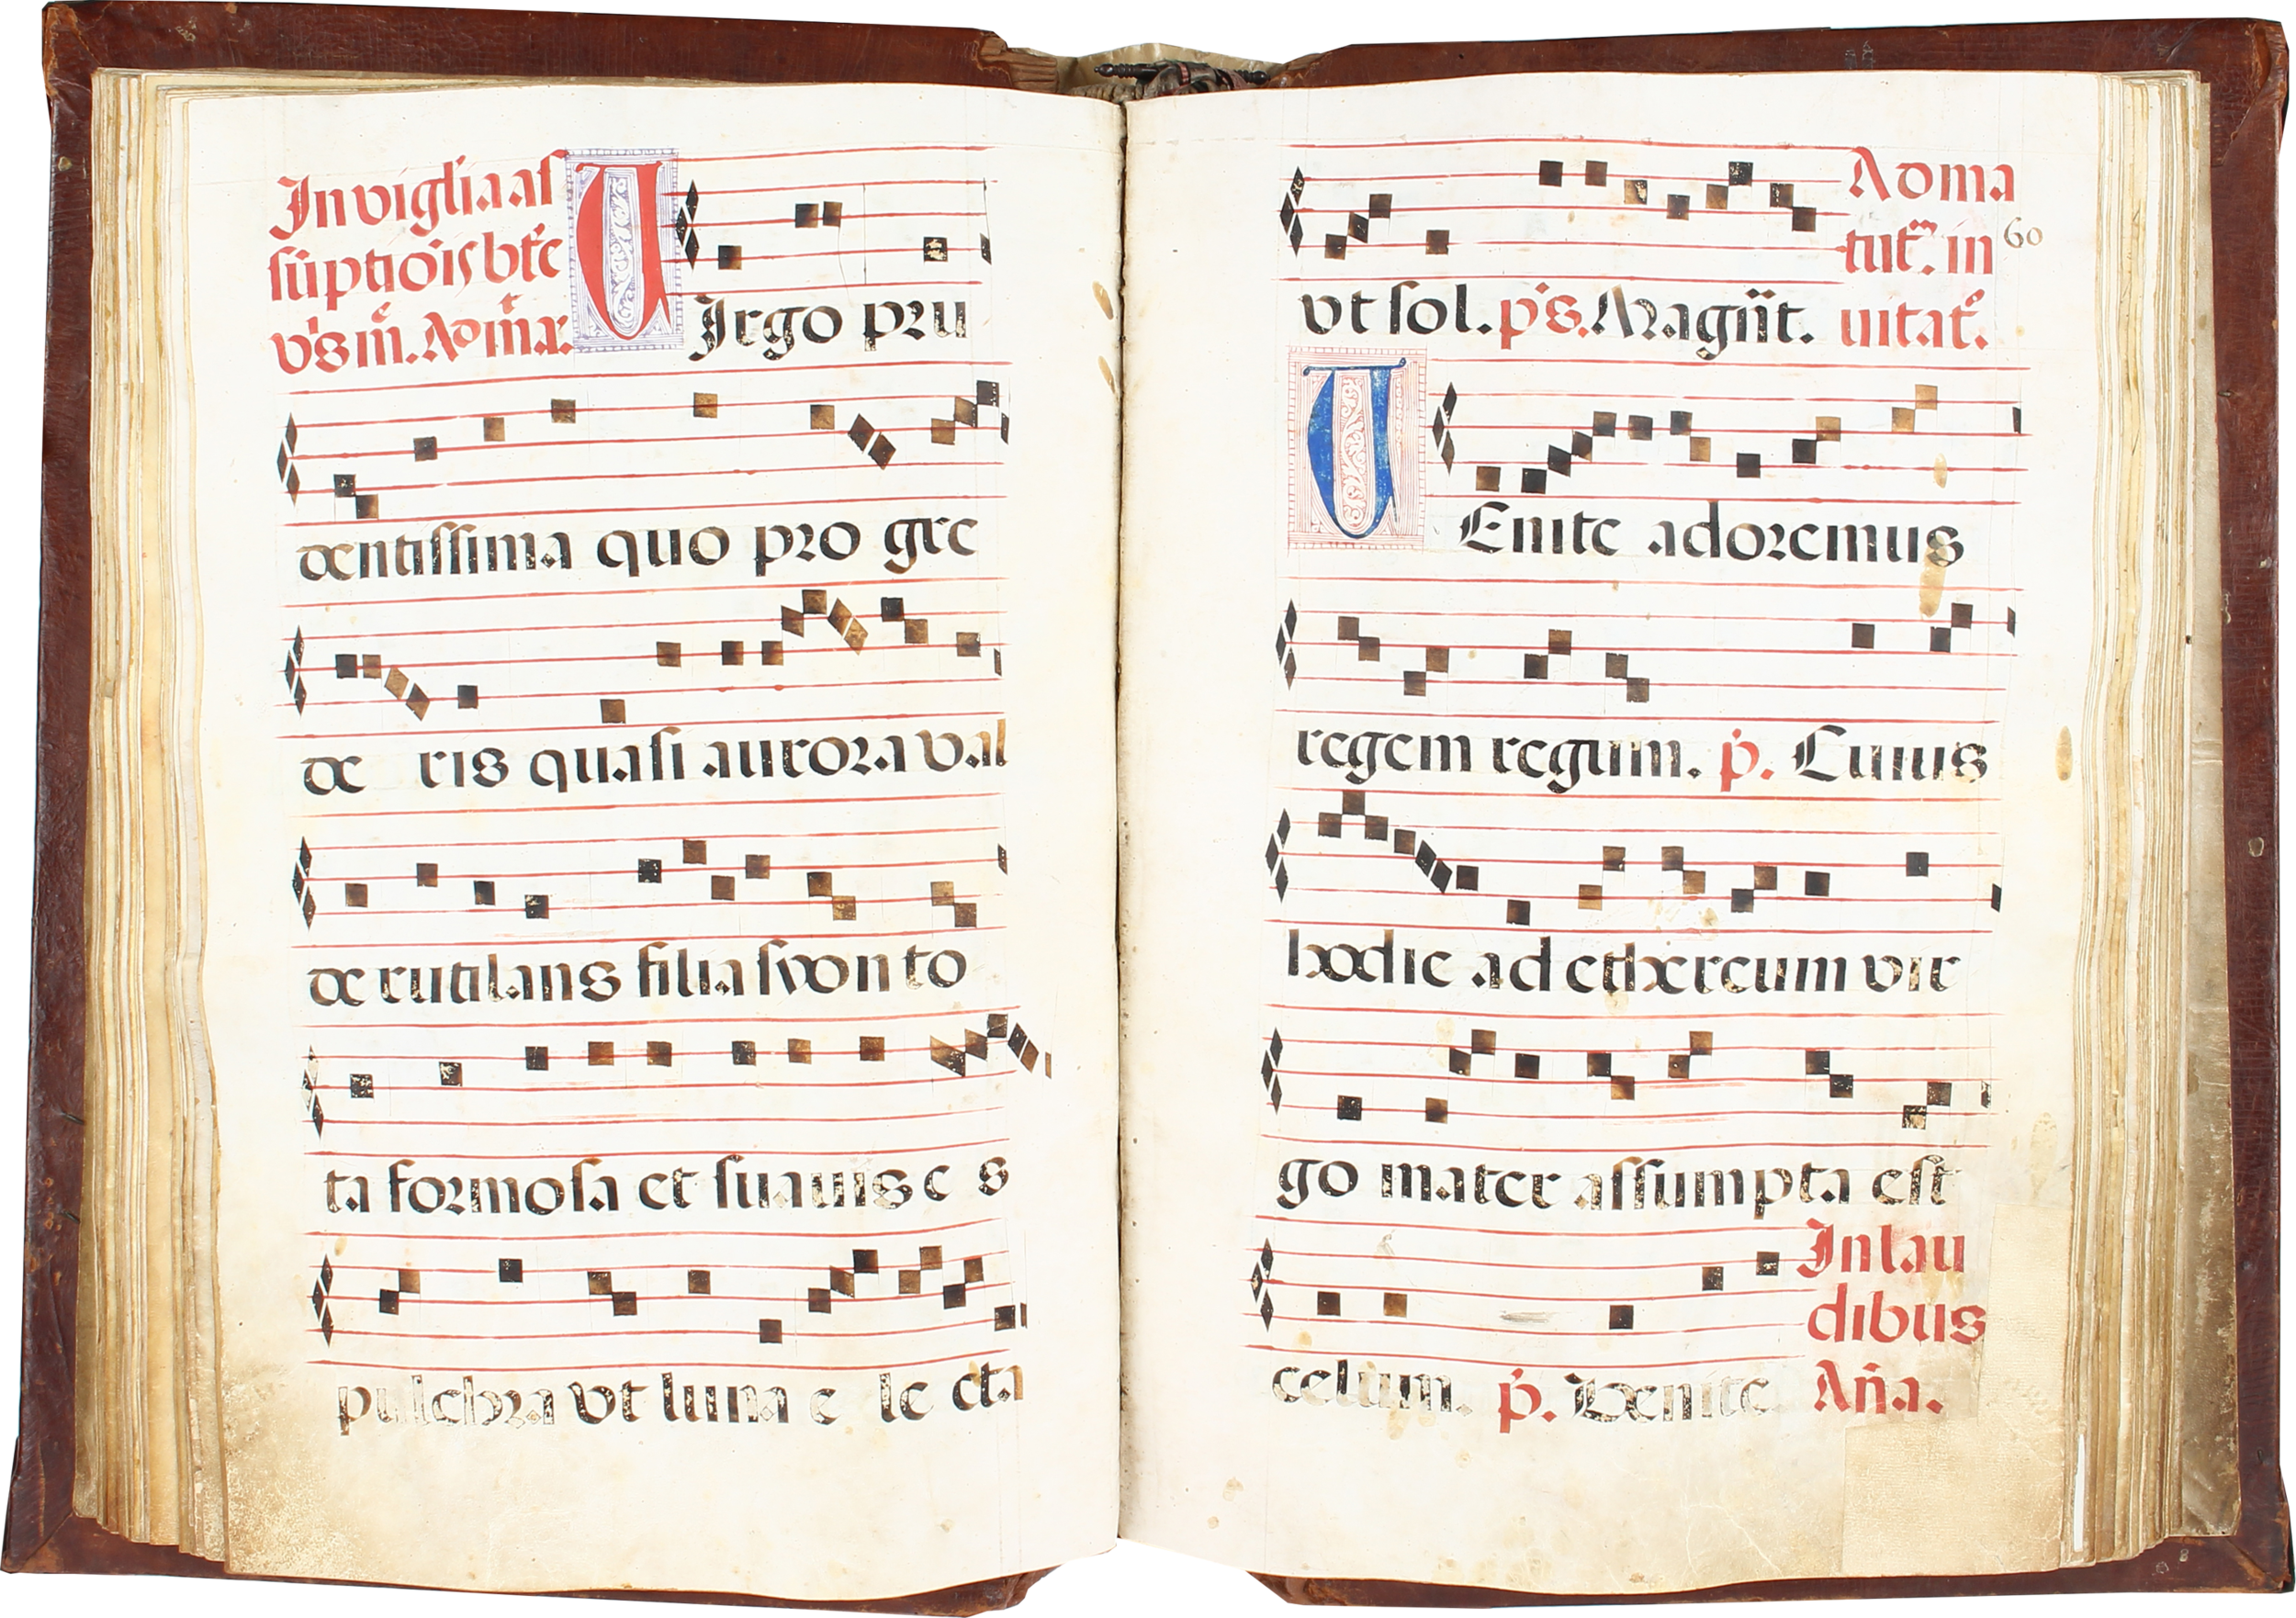 In vigilia as
sũptiõis btẽ
v̓gis m̃. Ad m̃a.
VIrgo pru
dentissima quo pro gre
de ris quasi aurora val
de rutilans filia syon to
ta formosa et suauis e s
pulchra vt luna e le cta
vt sol. p̓s. Magñt.
Ad ma
tut̃. in
uitat̃.
60
VEnite adoremus
regem regum. p̓. Cuius
hodie ad ethereum vir
go mater assumpta est
celum. p̓. Venite
In lau
dibus
Añа.